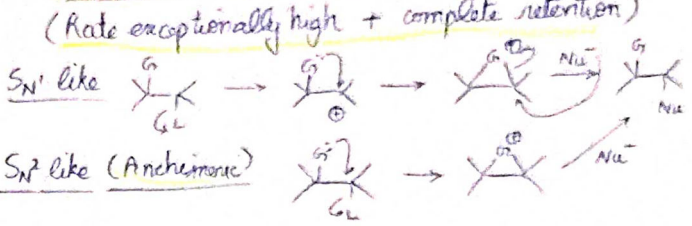 (Rate exceptionally high + complete retention)
SN¹ like G GL G: ⊕ G ⊕ Nu⁻ G Nu
SN² like (Anchimeric) G: GL G ⊕ Nu⁻